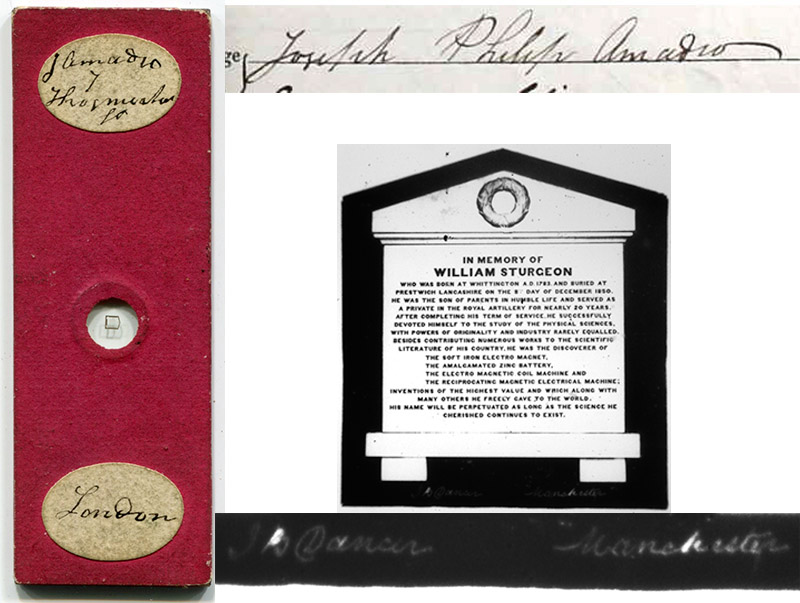 J Amadio
7
Throgmorton
St
London
ge Joseph Philip Amadio
IN MEMORY OF
WILLIAM STURGEON
WHO WAS BORN AT WHITTINGTON A.D. 1783. AND BURIED AT
PRESTWICH LANCASHIRE ON THE 8. DAY OF DECEMBER 1850.
HE WAS THE SON OF PARENTS IN HUMBLE LIFE AND SERVED AS
A PRIVATE IN THE ROYAL ARTILLERY FOR NEARLY 20 YEARS.
AFTER COMPLETING HIS TERM OF SERVICE, HE SUCCESSFULLY
DEVOTED HIMSELF TO THE STUDY OF THE PHYSICAL SCIENCES,
WITH POWERS OF ORIGINALITY AND INDUSTRY RARELY EQUALLED.
BESIDES CONTRIBUTING NUMEROUS WORKS TO THE SCIENTIFIC
LITERATURE OF HIS COUNTRY, HE WAS THE DISCOVERER OF
THE SOFT IRON ELECTRO MAGNET,
THE AMALGAMATED ZINC BATTERY,
THE ELECTRO MAGNETIC COIL MACHINE AND
THE RECIPROCATING MAGNETIC ELECTRICAL MACHINE;
INVENTIONS OF THE HIGHEST VALUE AND WHICH ALONG WITH
MANY OTHERS HE FREELY GAVE TO THE WORLD.
HIS NAME WILL BE PERPETUATED AS LONG AS THE SCIENCE HE
CHERISHED CONTINUES TO EXIST.
J B Dancer Manchester
J B Dancer Manchester